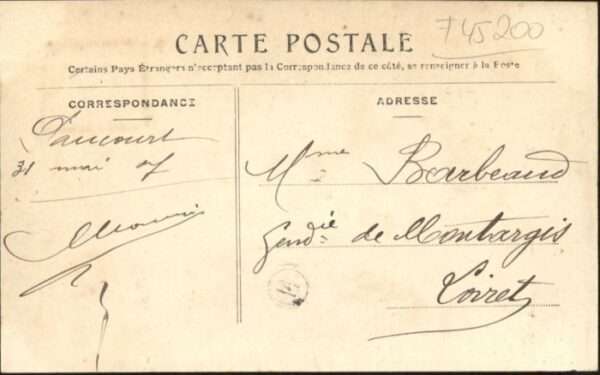 745200
CARTE POSTALE
Certains Pays Étrangers n'acceptant pas la Correspondance de ce côté, se renseigner à la Poste
CORRESPONDANCE
ADRESSE
Paucourt
31 mai 07
Mme Barbeaud
Gendie de Montargis
Loiret